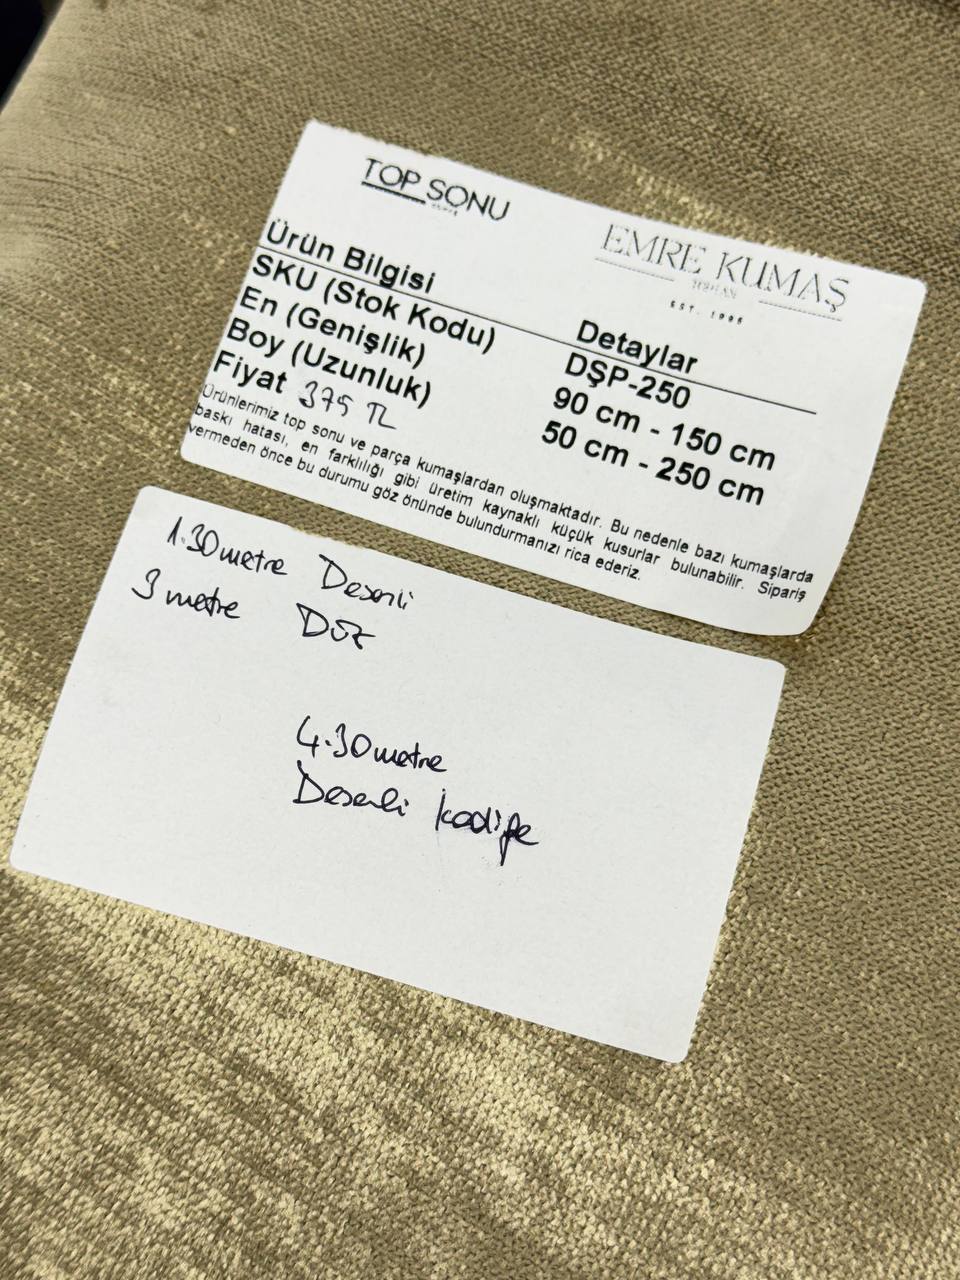 TOP SONU
EMRE KUMAŞ
EST. 1996
Ürün Bilgisi Detaylar
SKU (Stok Kodu) DŞP-250
En (Genişlik) 90 cm - 150 cm
Boy (Uzunluk) 50 cm - 250 cm
Fiyat 375 TL
Ürünlerimiz top sonu ve parça kumaşlardan oluşmaktadır. Bu nedenle bazı kumaşlarda
baskı hatası, en farklılığı gibi üretim kaynaklı küçük kusurlar bulunabilir. Sipariş
vermeden önce bu durumu göz önünde bulundurmanızı rica ederiz.
1.30 metre Desenli
3 metre Düz
4.30 metre
Desenli kadife